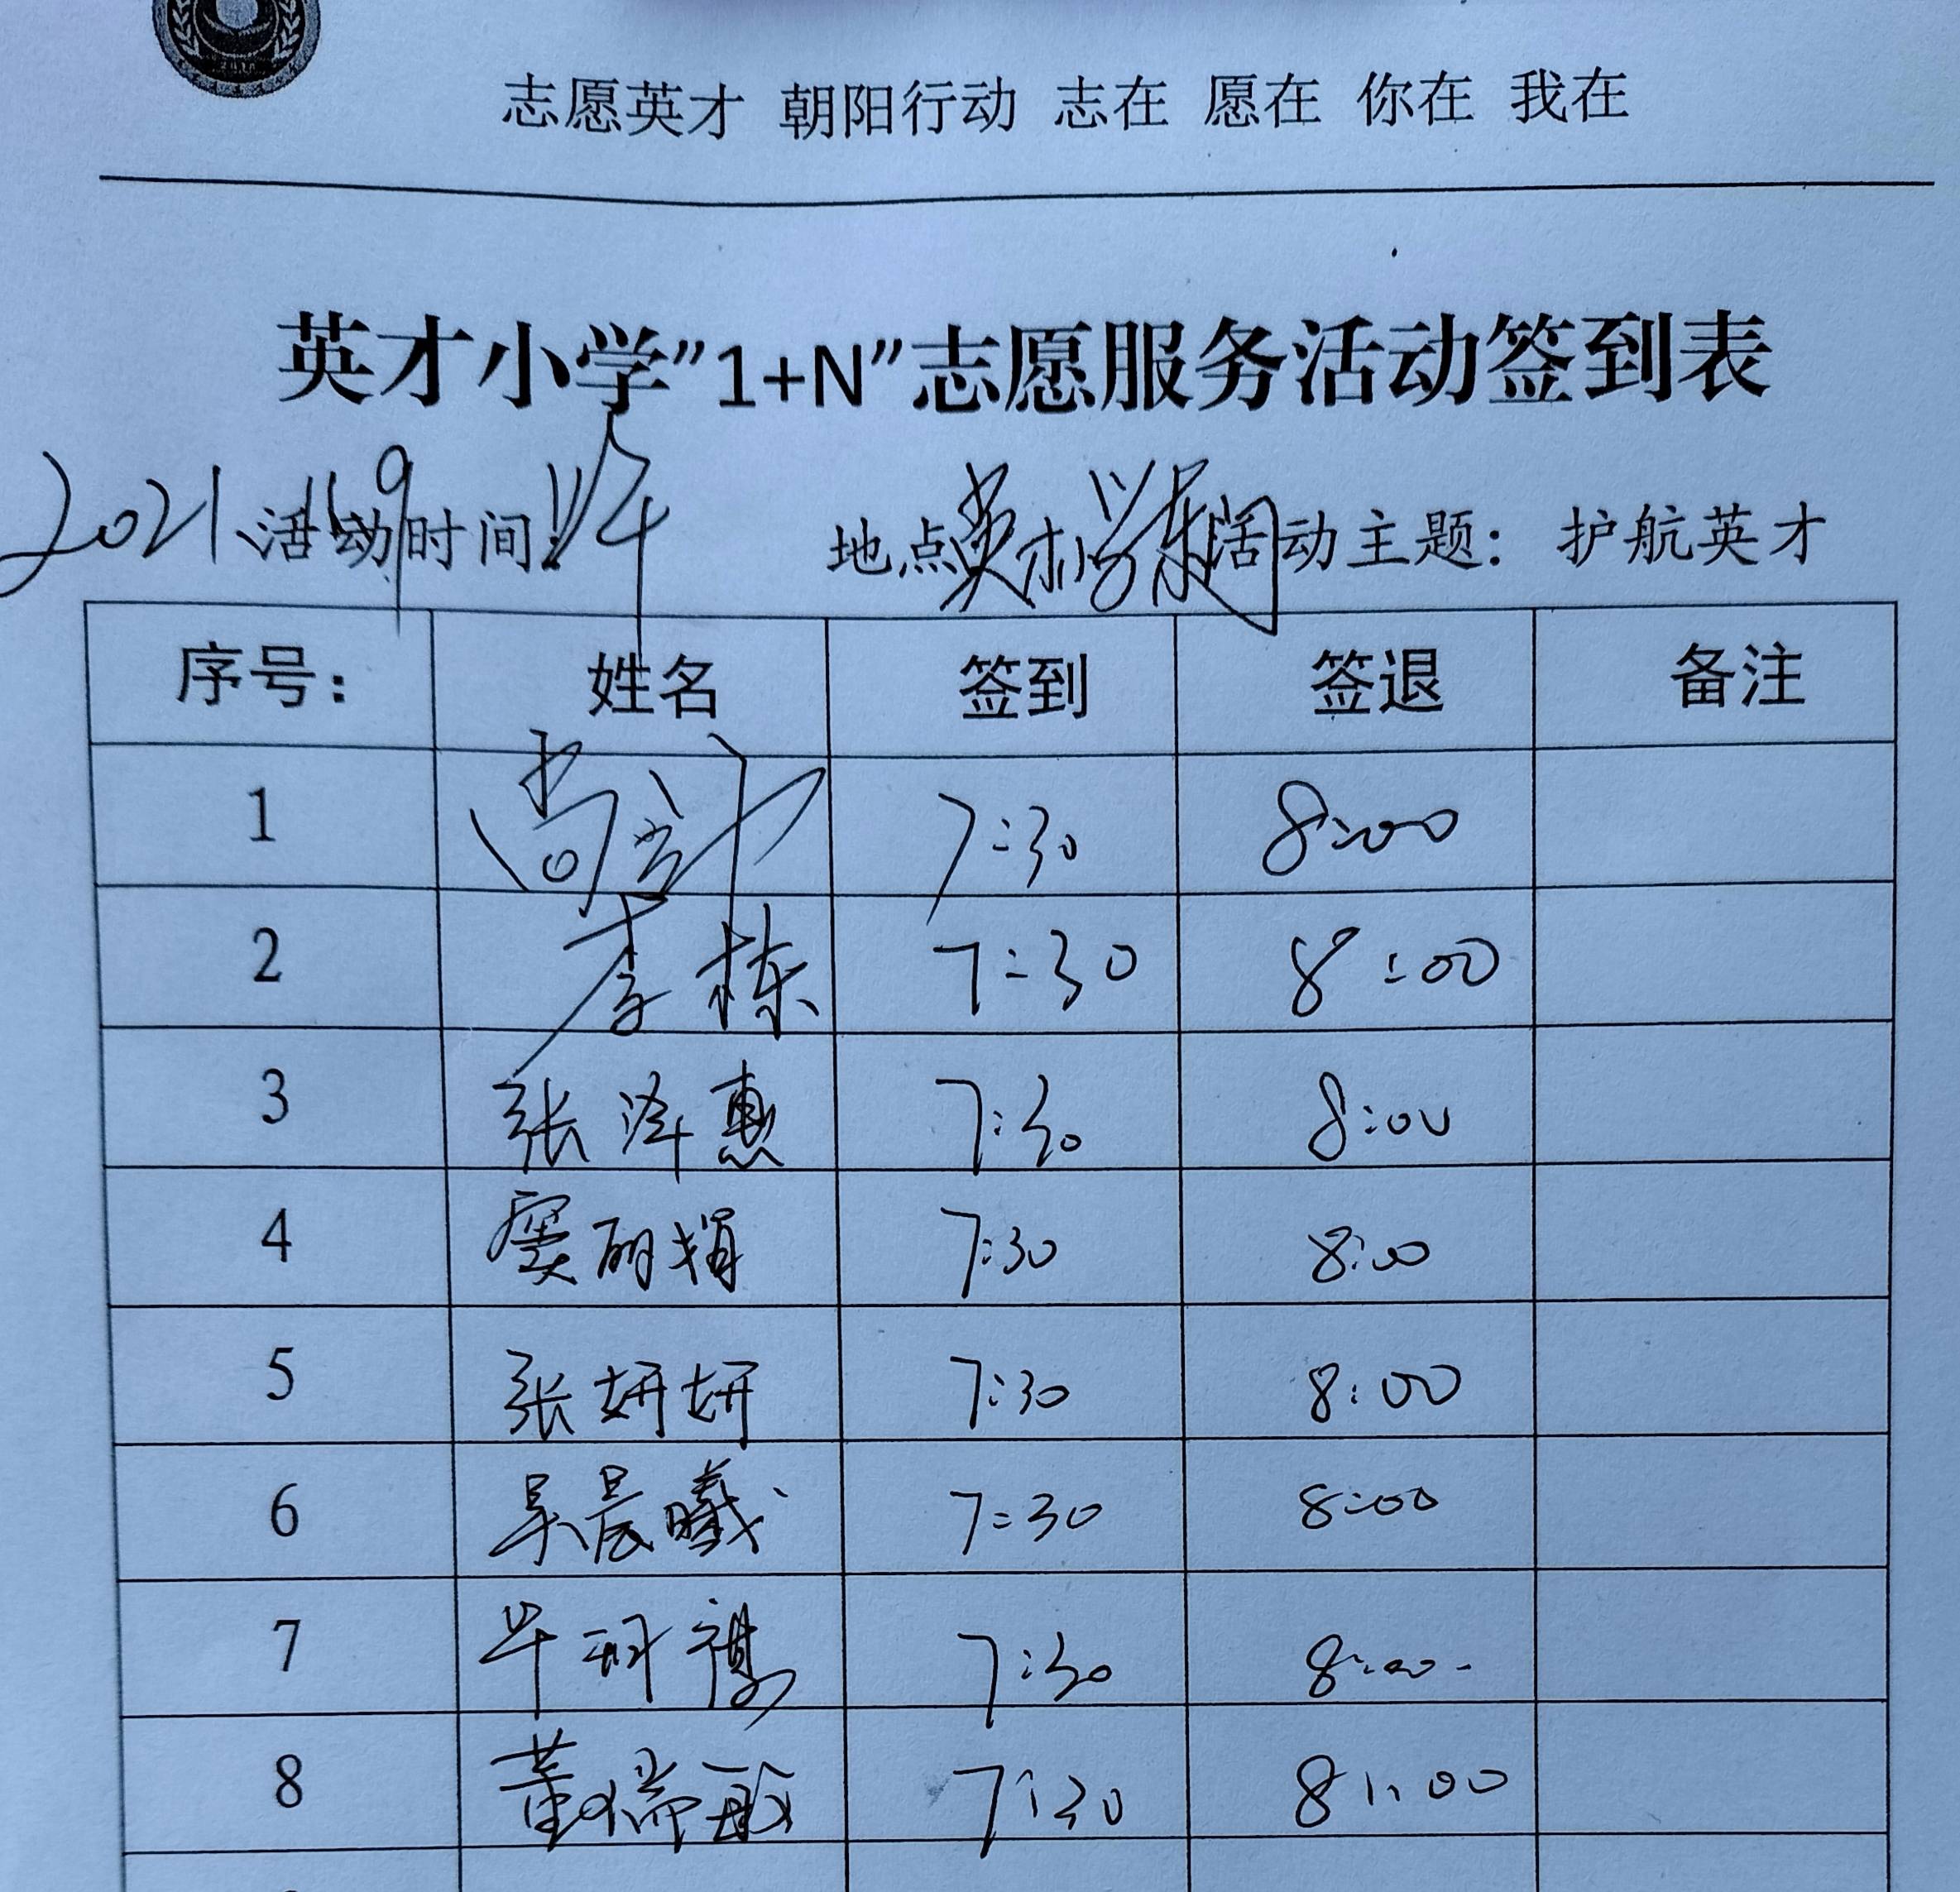 志愿英才 朝阳行动 志在 愿在 你在 我在
英才小学”1+N”志愿服务活动签到表
2021.11.9 活动时间: 上午 地点 英才小学东门 活动主题: 护航英才
序号: 姓名 签到 签退 备注
1 7:30 8:00
2 李栋 7:30 8:00
3 张泽惠 7:30 8:00
4 窦丽娟 7:30 8:00
5 张妍妍 7:30 8:00
6 吴晨曦 7:30 8:00
7 毕珂禛 7:30 8:00
8 董瑞敏 7:30 8:00